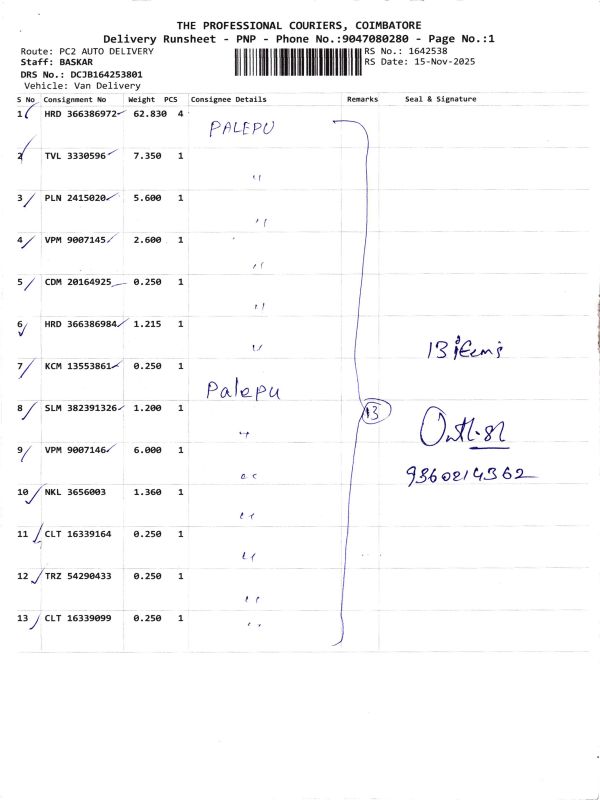 THE PROFESSIONAL COURIERS, COIMBATORE
Delivery Runsheet - PNP - Phone No.:9047080280 - Page No.:1
Route: PC2 AUTO DELIVERY RS No.: 1642538
Staff: BASKAR RS Date: 15-Nov-2025
DRS No.: DCJB164253801
Vehicle: Van Delivery
S No Consignment No Weight PCS Consignee Details Remarks Seal & Signature
1 HRD 366386972 62.830 4 PALEPU
2 TVL 3330596 7.350 1 "
3 PLN 2415020 5.600 1 "
4 VPM 9007145 2.600 1 "
5 CDM 20164925 0.250 1 "
6 HRD 366386984 1.215 1 "
13 items
7 KCM 13553861 0.250 1 Palepu
8 SLM 382391326 1.200 1 " 13
9 VPM 9007146 6.000 1 " 9360214362
10 NKL 3656003 1.360 1 "
11 CLT 16339164 0.250 1 "
12 TRZ 54290433 0.250 1 "
13 CLT 16339099 0.250 1 "